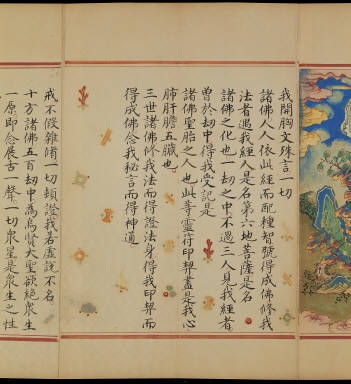 我開胸文殊言一切
諸佛人人依此經而配種智號得成佛修我
法者遇我經人是名第六地菩薩是名
諸佛之化也一劫之中不過三人見我經者
曾於劫中得我受記是
諸佛聖胎之人也此等靈符印契盡是我心
肺肝膽五臟也
三世諸佛修我法而得證法身得我印契而
得成佛念我秘言而得神通
戒不假雜脩一切頓證我若虛說不名
十方諸佛五百劫中為烏賢大聖欲絕眾生
一原即念展古一聲一切眾星是眾生之性